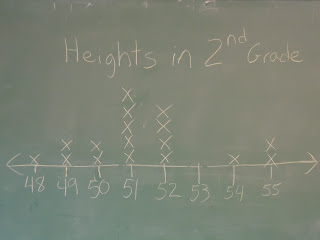 Heights in 2nd Grade
48 49 50 51 52 53 54 55